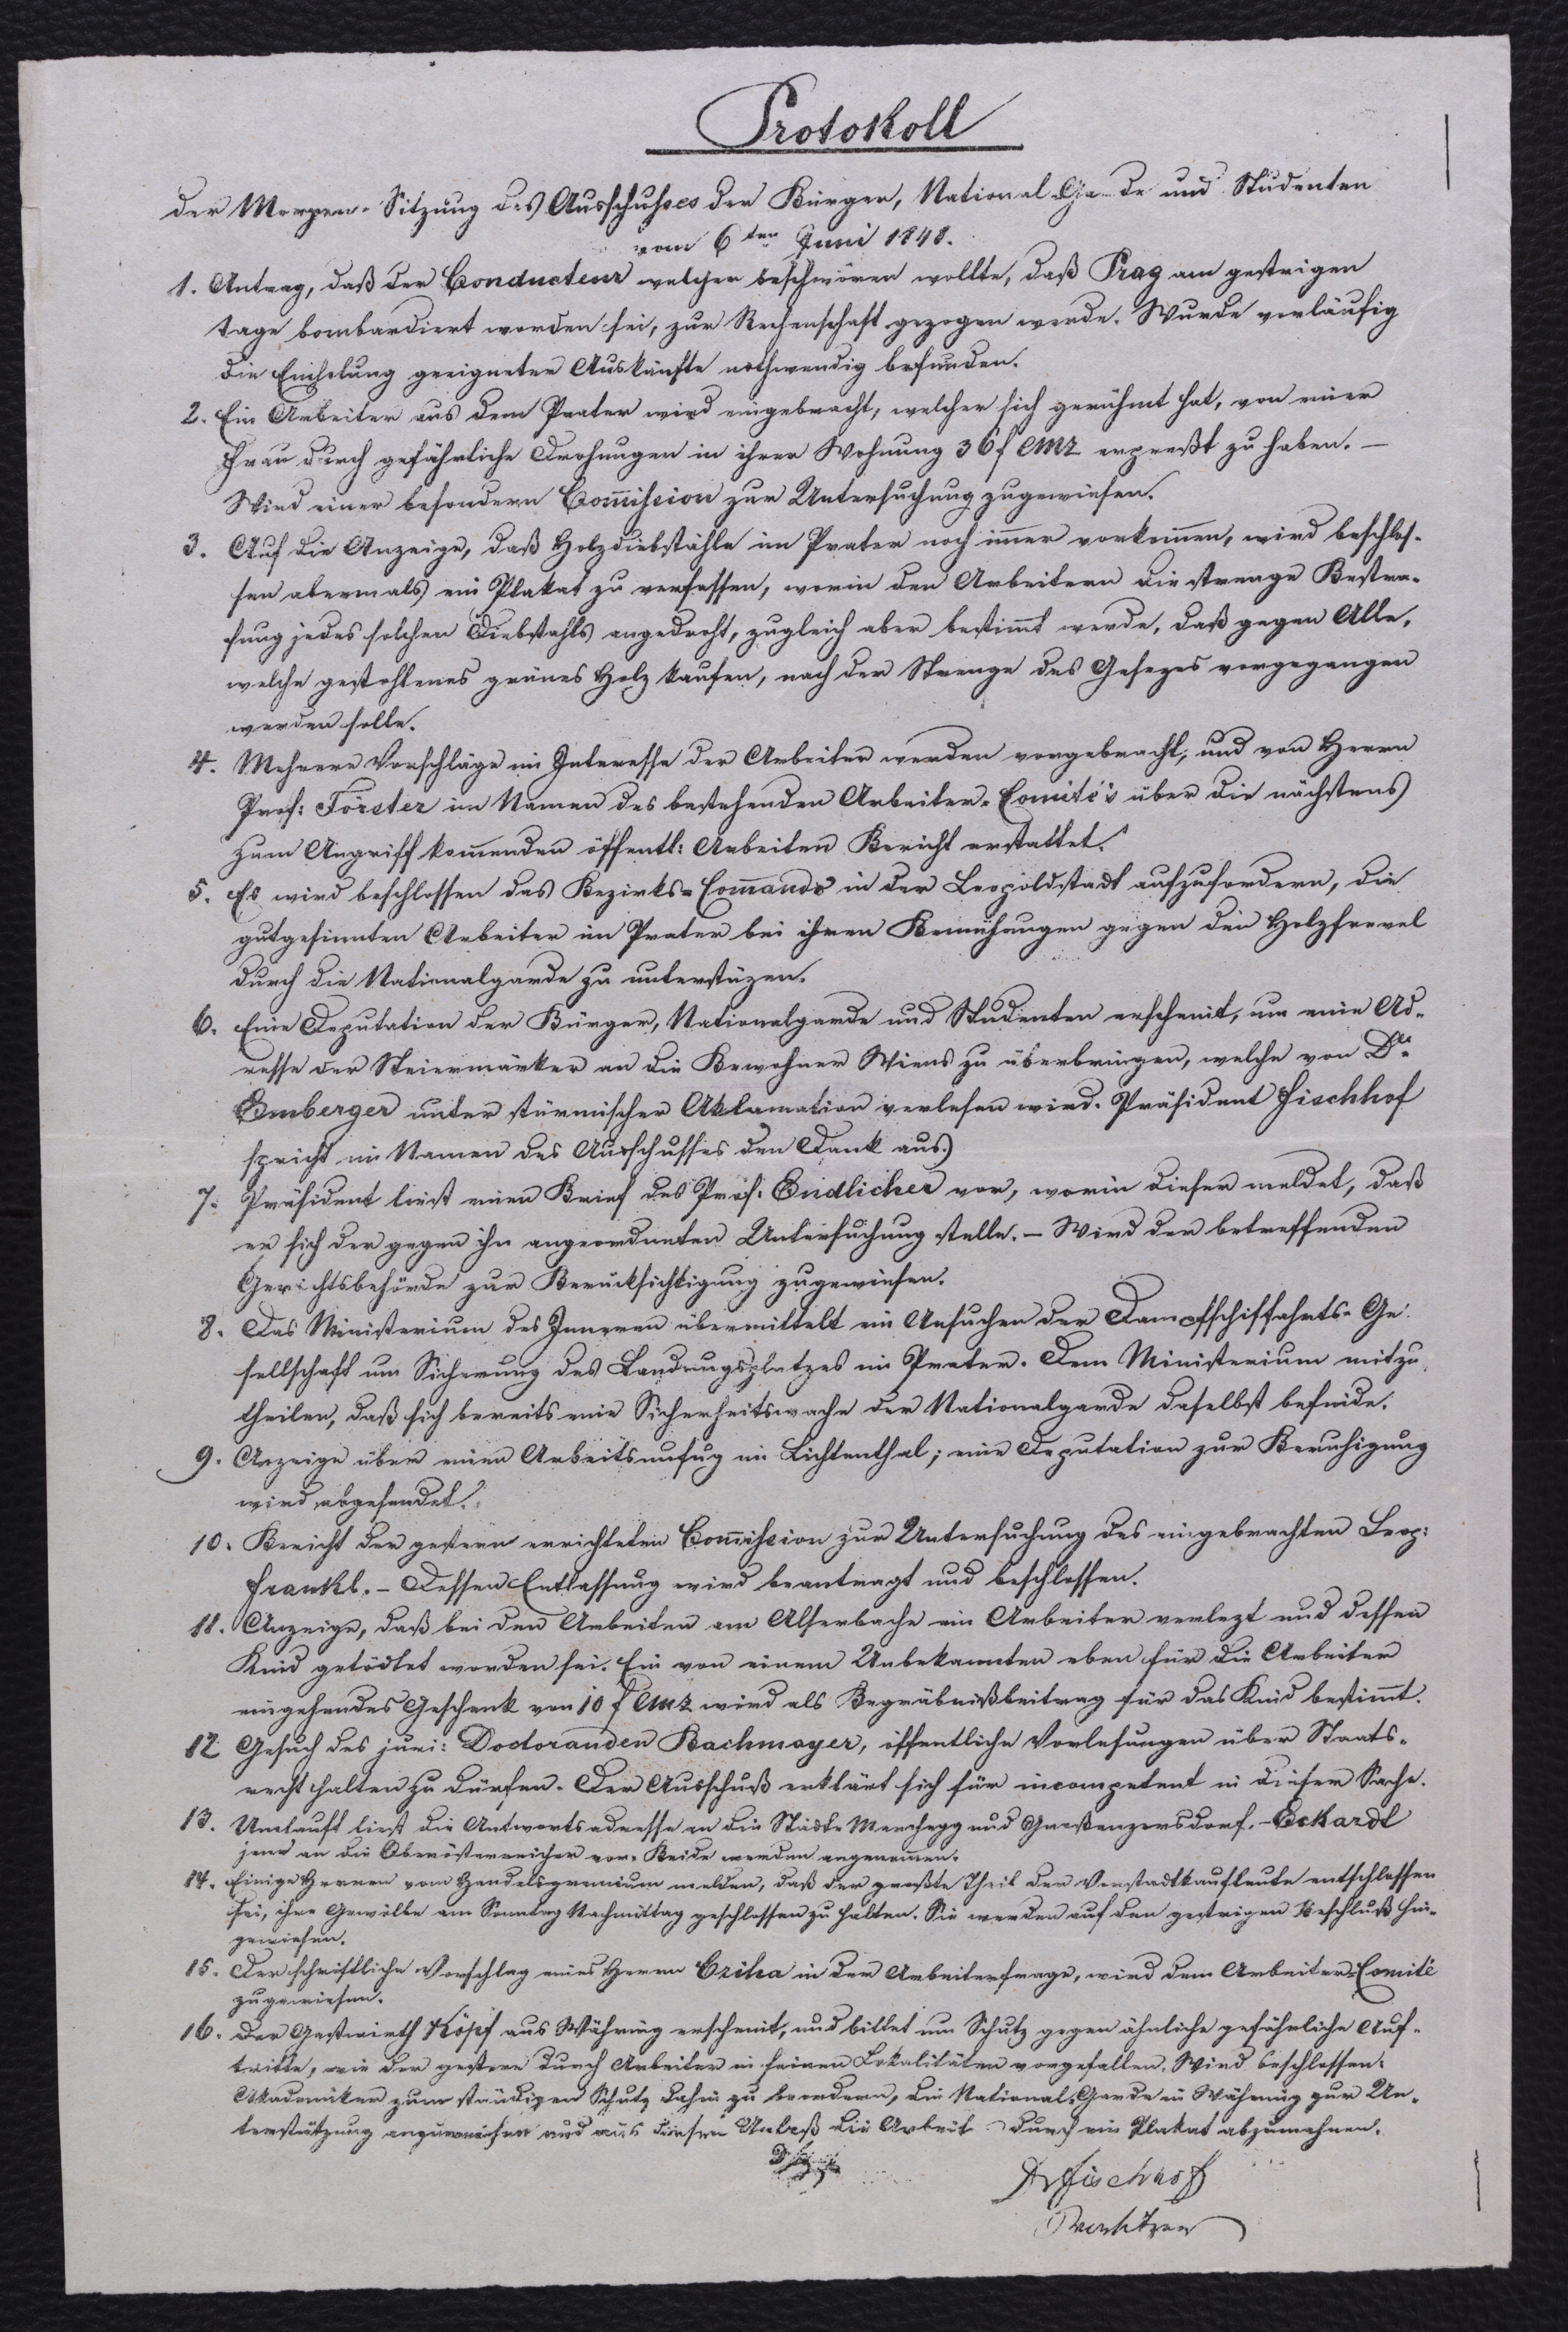 Protokoll
der Morgen-Sitzung des Ausschußes der Bürger, National-Garde und Studenten
vom 6ten Juni 1848.
1. Antrag, daß der Conducteur welcher beschwören wollte, daß Prag am gestrigen
Tage bombardiert worden sei, zur Rechenschaft gezogen werde. Wurde vorläufig
die Einholung geeigneter Auskünfte nothwendig befunden.
2. Ein Arbeiter aus dem Prater wird eingebracht, welcher sich gerühmt hat, von einer
Frau durch gefährliche Drohungen in ihrer Wohnung 36 f CMz erpreßt zu haben. –
Wird einer besondern Com̄ission zur Untersuchung zugewiesen.
3. Auf die Anzeige, daß Holzdiebstähle im Prater noch im̄er vorkom̄en, wird beschlos-
sen abermals ein Plakat zu verfassen, worin den Arbeitern die strenge Bestra-
fung jedes solchen Diebstahls angedroht, zugleich aber bestim̄t werde, daß gegen Alle,
welche gestohlenes grünes Holz kaufen, nach der Strenge des Gesezes vorgegangen
werden solle.
4. Mehrere Vorschläge im Interesse der Arbeiter werden vorgebracht, und von Herrn
Prof: Förster im Namen des bestehenden Arbeiter-Comité's über die nächstens
zum Angriff kom̄enden öffentl: Arbeiten Bericht erstattet.
5. Es wird beschlossen das Bezirks-Com̄ando in der Leopoldstadt aufzufordern, die
gutgesinnten Arbeiter im Prater bei ihren Bemühungen gegen den Holzfrevel
durch die Nationalgarde zu unterstüzen.
6. Eine Deputation der Bürger, Nationalgarde und Studenten erscheint, um eine Ad-
resse der Steiermärker an die Bewohner Wiens zu überbringen, welche von Dr.
Emberger unter stürmischer Aklamation verlesen wird. Präsident Fischhof
spricht im Namen des Ausschusses den Dank aus.
7. Präsident liest einen Brief des Prof: Endlicher vor, worin dieser meldet, daß
er sich der gegen ihn angeordneten Untersuchung stelle. – Wird der betreffenden
Gerichtsbehörde zur Berücksichtigung zugewiesen.
8. Das Ministerium des Inneren übermittelt ein Ansuchen der Dampfschiffahrts-Ge-
sellschaft um Sicherung des Landungsplatzes im Prater. Dem Ministerium mitzu-
theilen, daß sich bereits eine Sicherheitswache der Nationalgarde daselbst befinde.
9. Anzeige über einen Arbeitsunfug im Lichtenthal; eine Deputation zur Beruhigung
wird abgesendet.
10. Bericht der gestern errichteten Com̄ission zur Untersuchung des eingebrachten Leop:
Frankl. – Dessen Entlassung wird beantragt und beschlossen.
11. Anzeige, daß bei den Arbeiten am Alserbache ein Arbeiter verlezt und dessen
Kind getödtet worden sei. Ein von einem Unbekannten eben für die Arbeiter
eingehendes Geschenk von 10 f CMz wird als Begräbnißbeitrag für das Kind bestim̄t.
12 Gesuch des juri: Doctoranden Bachmayer, öffentliche Vorlesungen über Staats-
recht halten zu dürfen. Der Ausschuß erklärt sich für incompetent in dieser Sache.
13. Umlauft liest die Antwortsadresse an die Städte Marchegg und Großenzersdorf. – Eckardt
jene an die Oberösterreicher vor. Beide werden angenom̄en.
14. Einige Herren vom Handelsgremium melden, daß der großte Theil der Vorstadtkaufleute entschlossen
sei, ihre Gewölbe am Sonntag Nachmittag geschlossen zu halten. Sie werden auf den gestrigen Beschluß hin-
gewiesen.
15. Der schriftliche Vorschlag eines Herrn Cziha in der Arbeiterfrage, wird dem Arbeiter-Comité
zugewiesen.
16. Der Gastwirth Köpf aus Währing erscheint, und bittet um Schutz gegen ähnliche gefährliche Auf-
tritte, wie der gestern durch Arbeiter in seinen Lokalitäten vorgefallen. Wird beschlossen:
Akademiker zum ständigen Schutz dahin zu beordern, die National-Garde in Währing zur Un-
terstützung anzuweisen und aus diesem Anlaß die Arbeiter durch ein Plakat abzumahnen.
Dr Fischhof